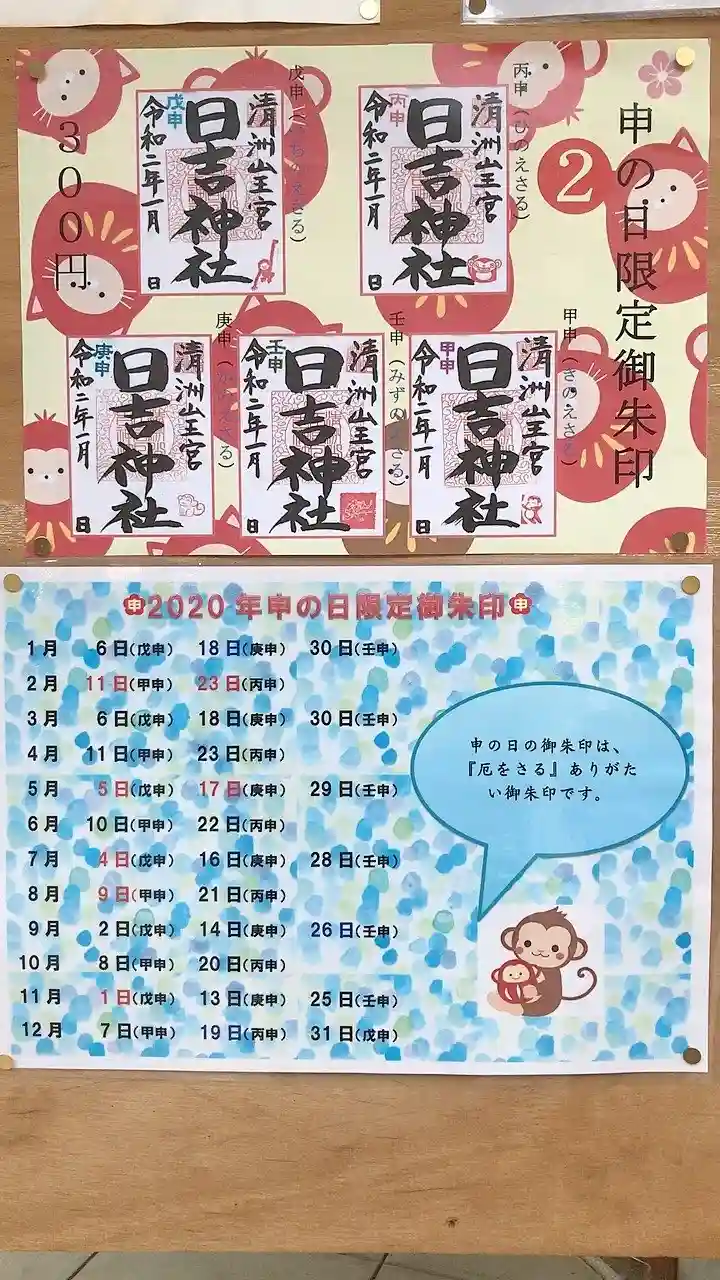 申の日限定御朱印
②
300円
丙申(ひのえさる)
清洲山王宮
丙申
日吉神社
令和二年一月
日
戊申(つちのえさる)
清洲山王宮
戊申
日吉神社
令和二年一月
日
甲申(きのえさる)
清洲山王宮
甲申
日吉神社
令和二年一月
日
壬申(みずのえさる)
清洲山王宮
壬申
日吉神社
令和二年一月
日
庚申(かのえさる)
清洲山王宮
庚申
日吉神社
令和二年一月
日
申2020年申の日限定御朱印申
1月 6日(戊申) 18日(庚申) 30日(壬申)
2月 11日(甲申) 23日(丙申)
3月 6日(戊申) 18日(庚申) 30日(壬申)
4月 11日(甲申) 23日(丙申)
5月 5日(戊申) 17日(庚申) 29日(壬申)
6月 10日(甲申) 22日(丙申)
7月 4日(戊申) 16日(庚申) 28日(壬申)
8月 9日(甲申) 21日(丙申)
9月 2日(戊申) 14日(庚申) 26日(壬申)
10月 8日(甲申) 20日(丙申)
11月 1日(戊申) 13日(庚申) 25日(壬申)
12月 7日(甲申) 19日(丙申) 31日(戊申)
申の日の御朱印は、
『厄をさる』ありがた
い御朱印です。